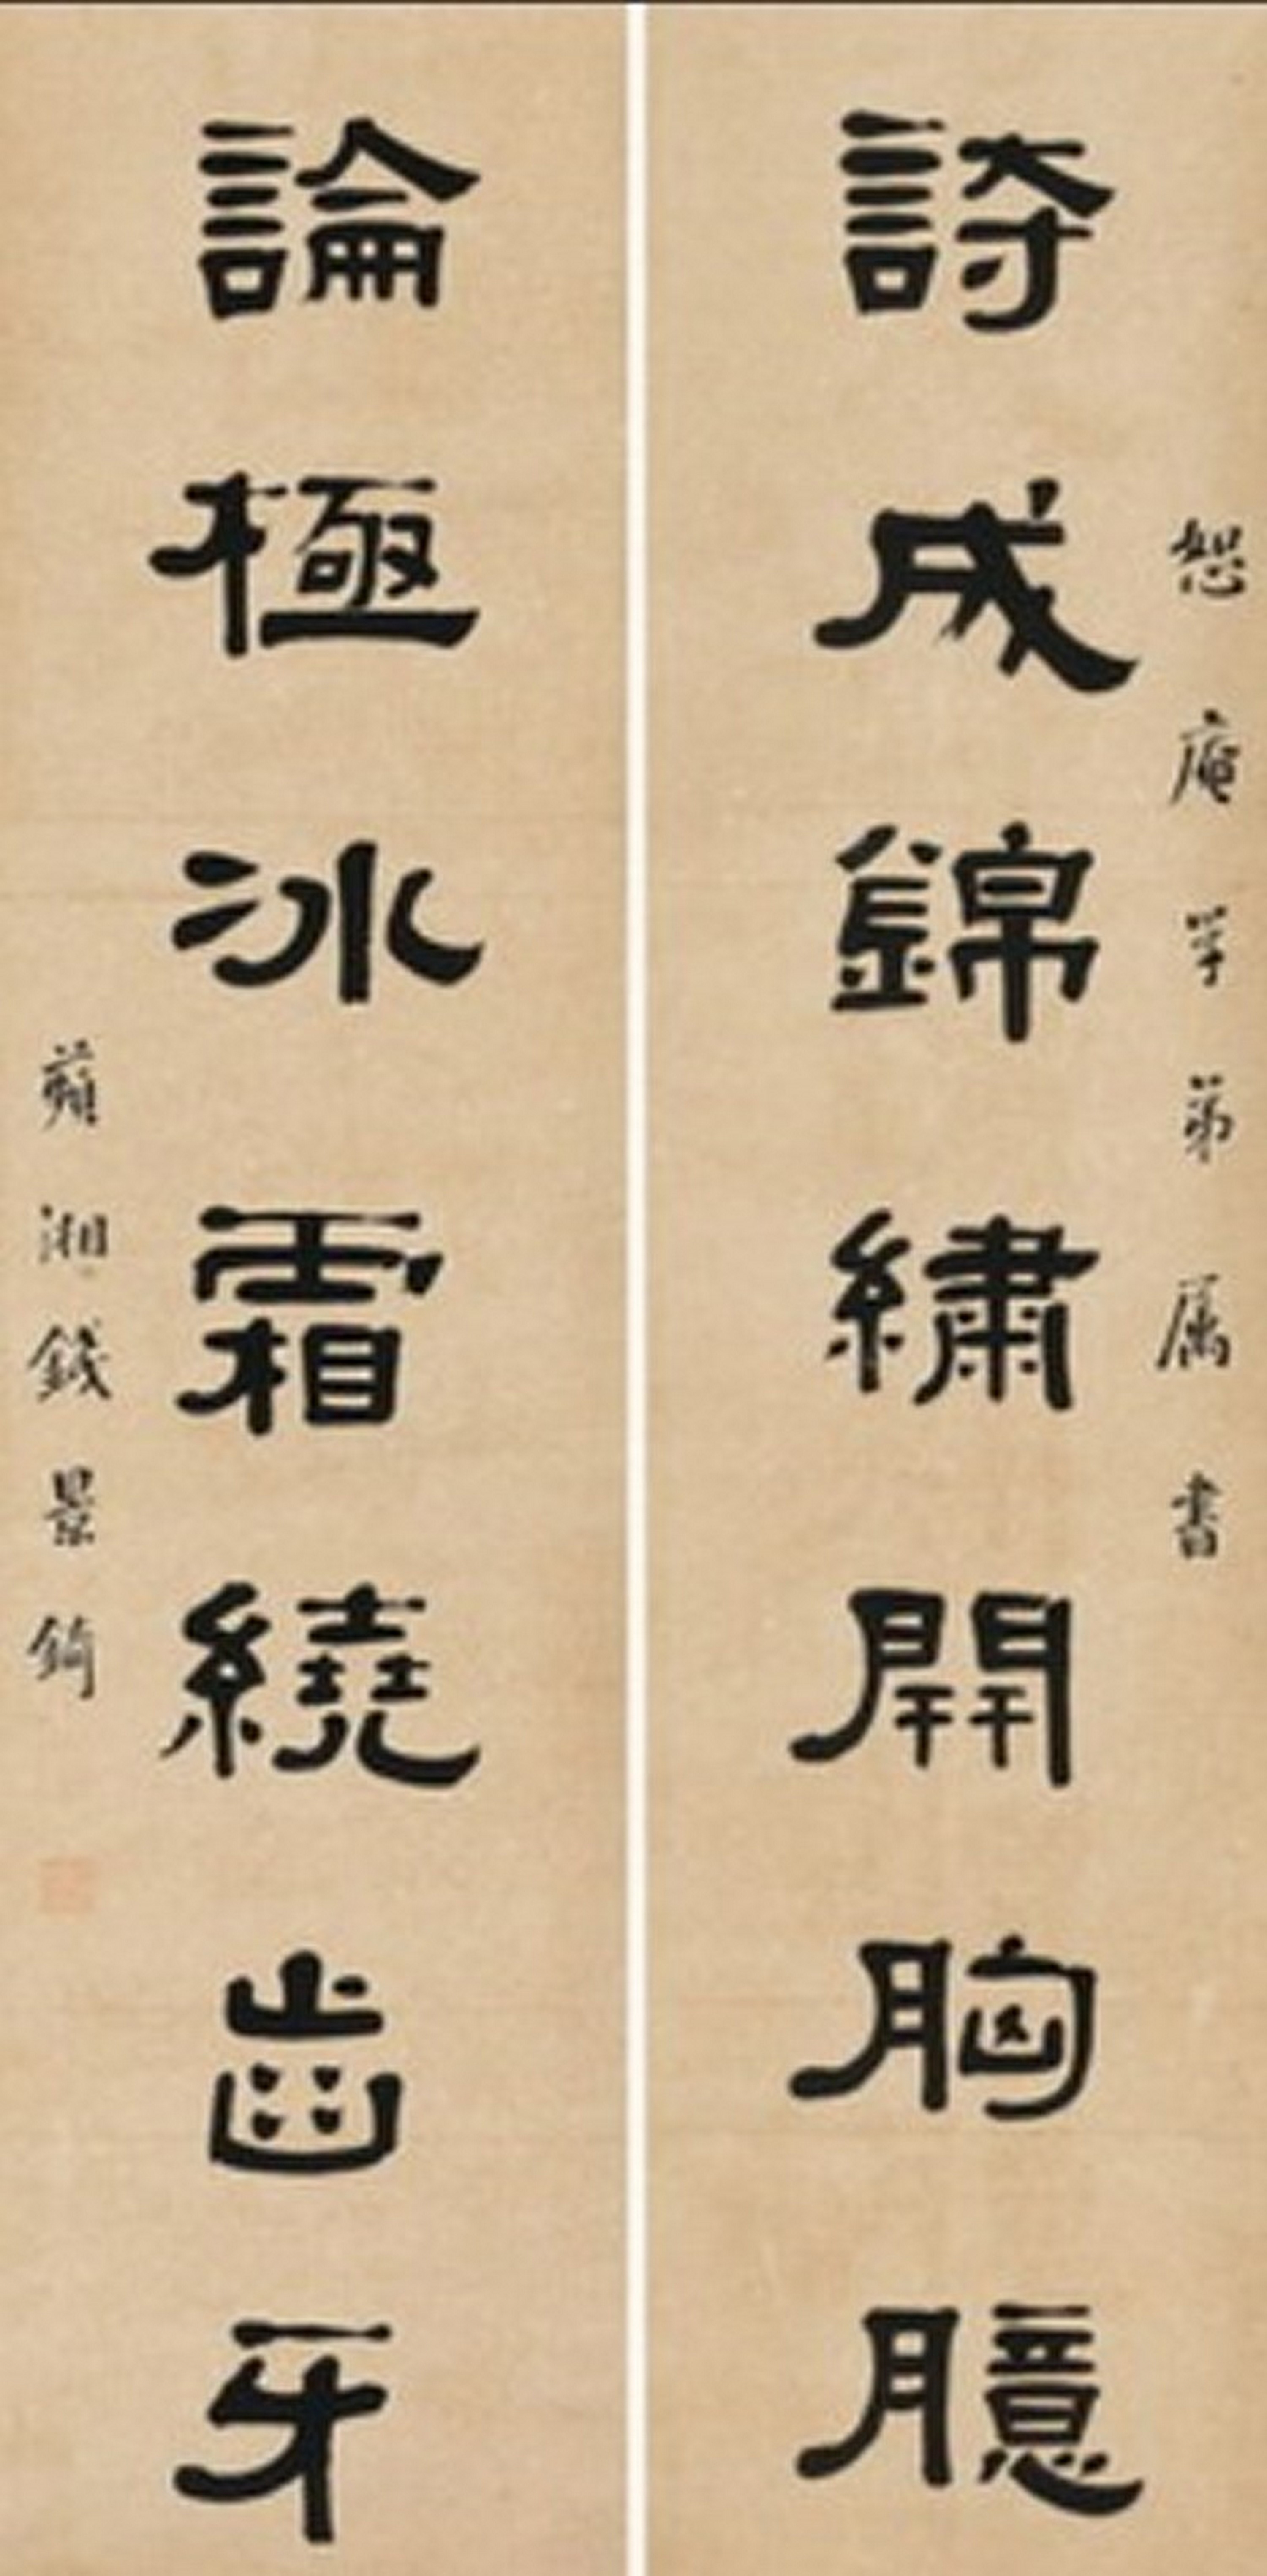 恕庵學弟属書
詩成錦繡開胸臆
論極冰霜繞齒牙
蘋湘錢景錡